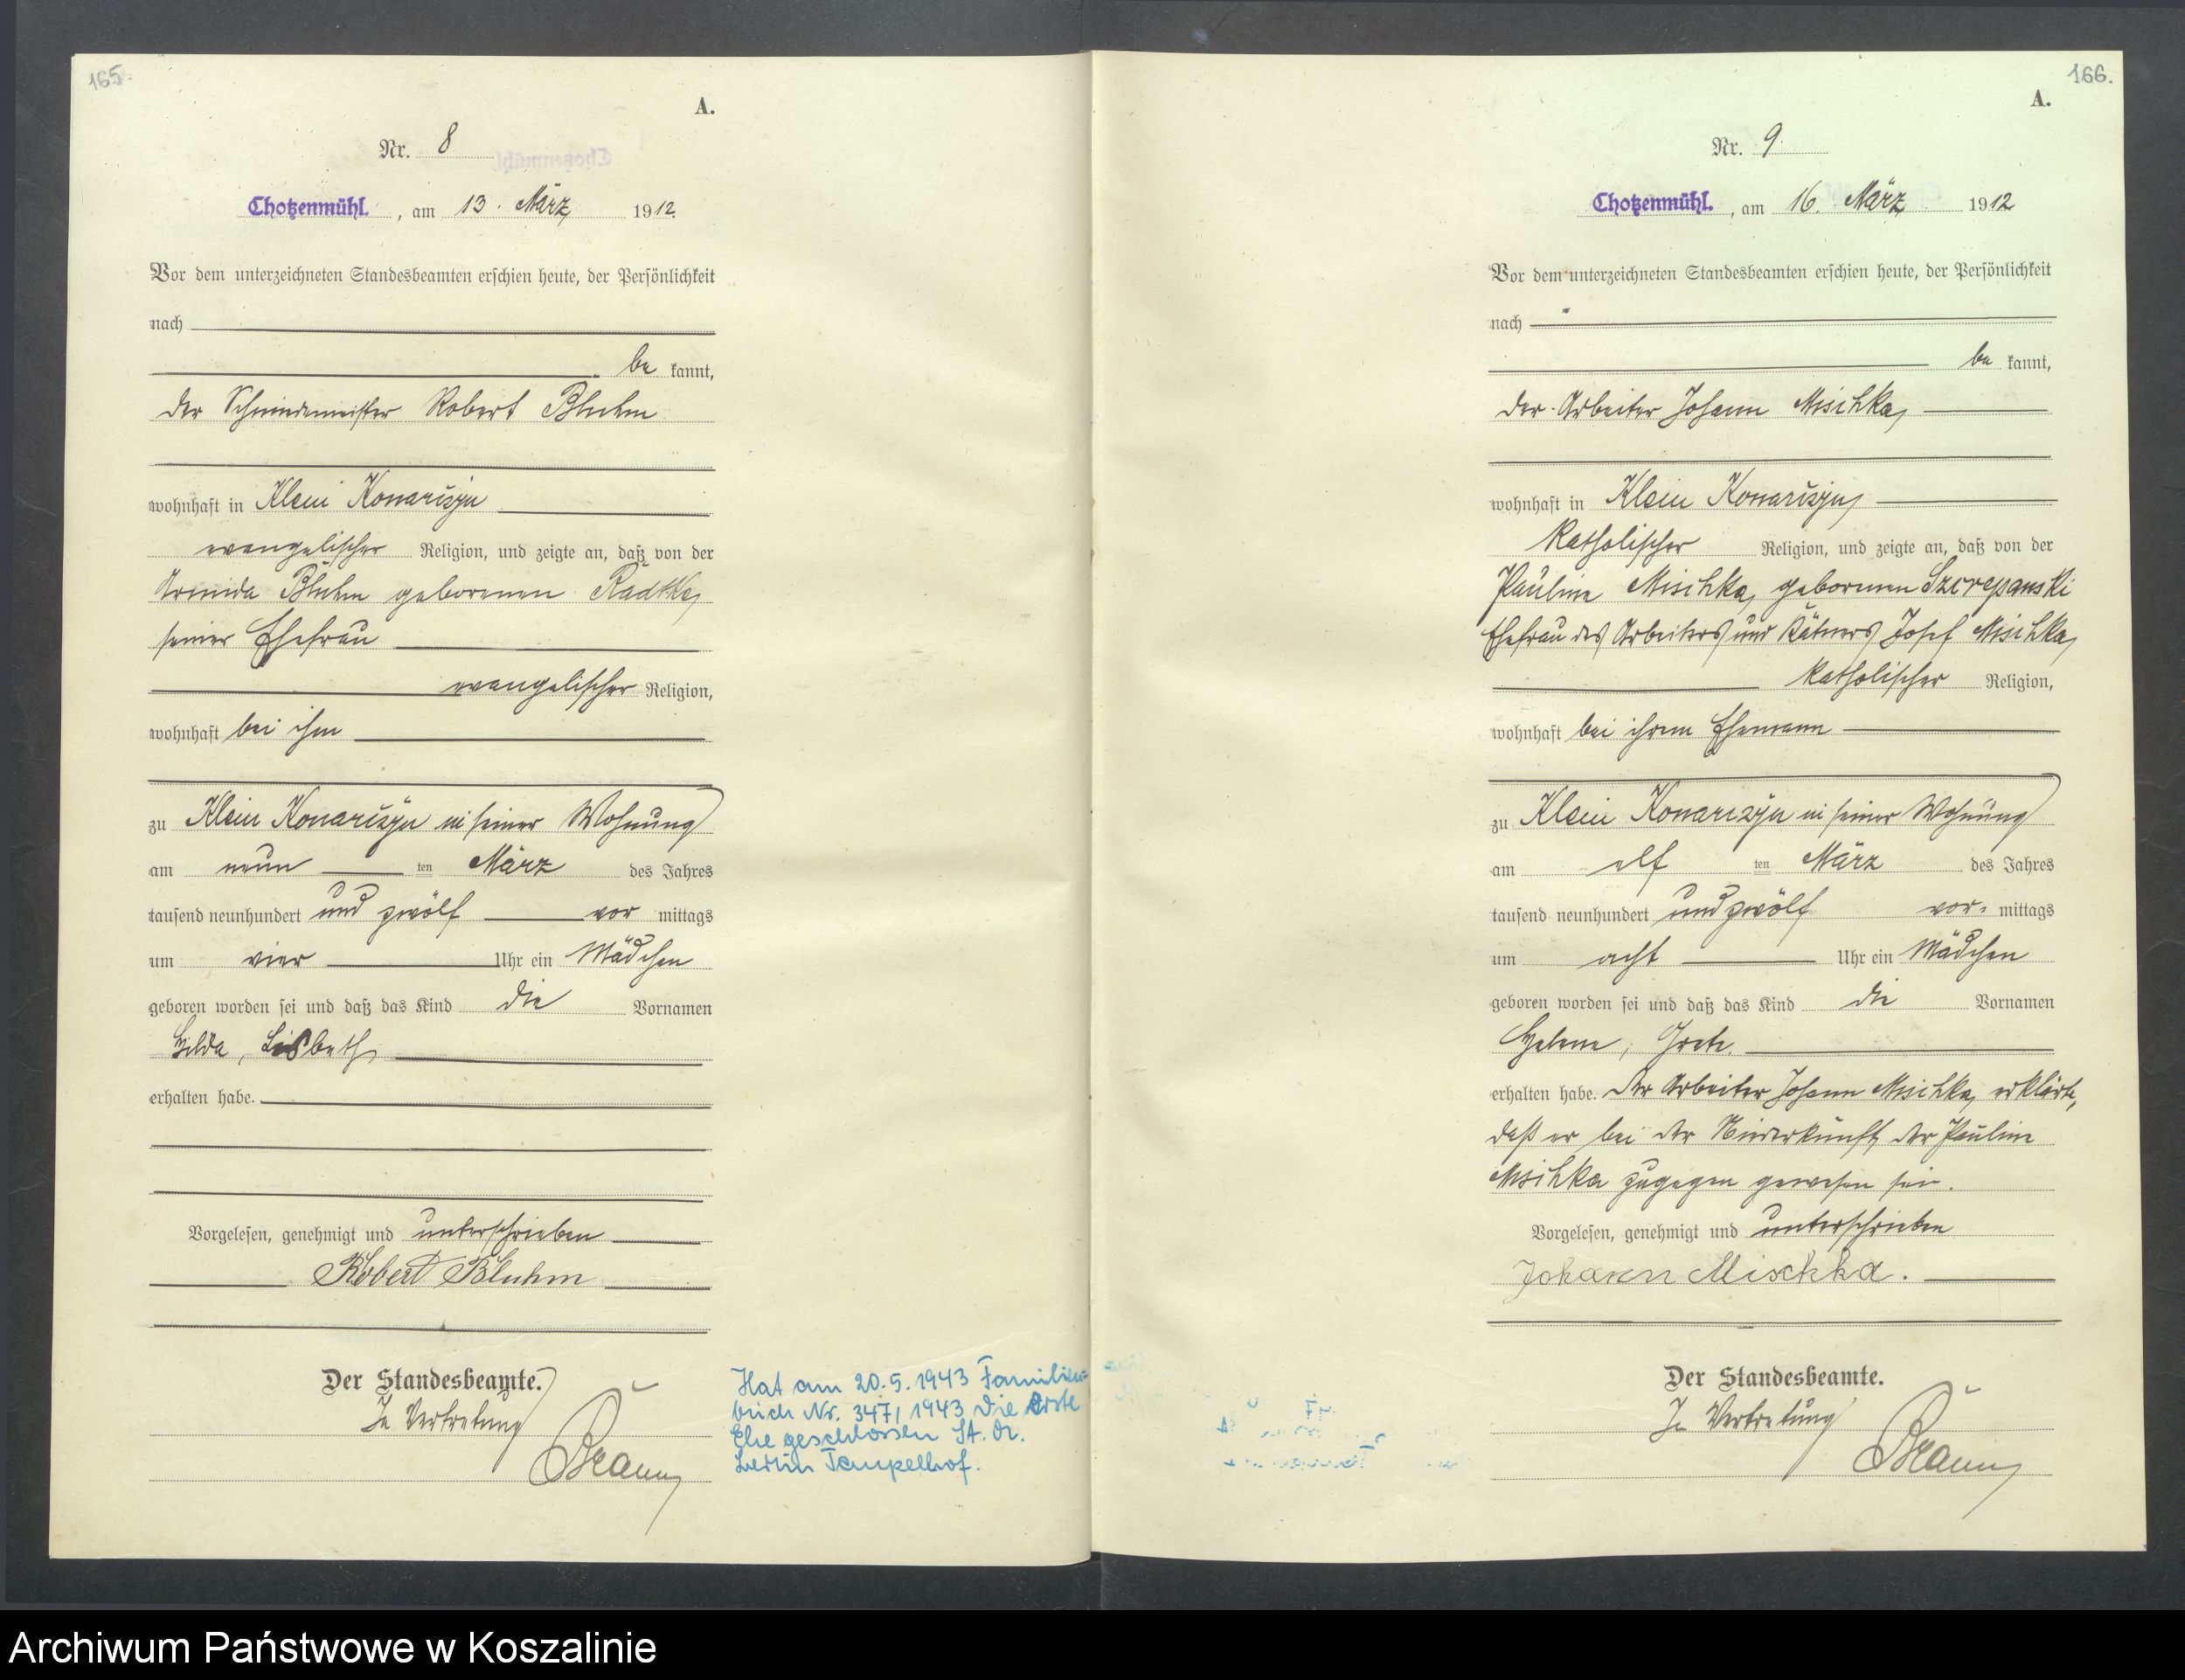 165.
A.
Nr. 8
Chotzenmühl. , am 13. März 1912.
Vor dem unterzeichneten Standesbeamten erschien heute, der Persönlichkeit
nach
be kannt,
der Schmiedemeister Robert Bluhm
wohnhaft in Klein Konarczyn
evangelischer Religion, und zeigte an, daß von der
Bluhm geborenen Radtke,
seiner Ehefrau
evangelischer Religion,
wohnhaft bei ihm
zu Klein Konarczyn in seiner Wohnung
am neun ten März des Jahres
tausend neunhundert und zwölf vor mittags
um vier Uhr ein Mädchen
geboren worden sei und daß das Kind die Vornamen
Hilda, Lisbeth
erhalten habe.
Vorgelesen, genehmigt und unterschrieben
Robert Bluhm
Der Standesbeamte.
In Vertretung
Braun
Hat am 20.5.1943 Familien-
buch Nr. 347/1943 die Erste
Ehe geschlossen St. A.
Berlin Tempelhof.
166.
A.
Nr. 9.
Chotzenmühl. , am 16. März 1912
Vor dem unterzeichneten Standesbeamten erschien heute, der Persönlichkeit
nach
be kannt,
der Arbeiter Johann Mischka,
wohnhaft in Klein Konarczyn,
katholischer Religion, und zeigte an, daß von der
Pauline Mischka, geborenen Szczepanski
Ehefrau des Arbeiters und Kätners Josef Mischka,
katholischer Religion,
wohnhaft bei ihrem Ehemann
zu Klein Konarczyn in seiner Wohnung
am elf ten März des Jahres
tausend neunhundert und zwölf vor- mittags
um acht Uhr ein Mädchen
geboren worden sei und daß das Kind die Vornamen
Helene, Grete.
erhalten habe. Der Arbeiter Johann Mischka, erklärte,
daß er bei der Niederkunft der Pauline
Mischka zugegen gewesen sei.
Vorgelesen, genehmigt und unterschrieben
Johann Mischka.
Der Standesbeamte.
In Vertretung
Braun
Archiwum Państwowe w Koszalinie